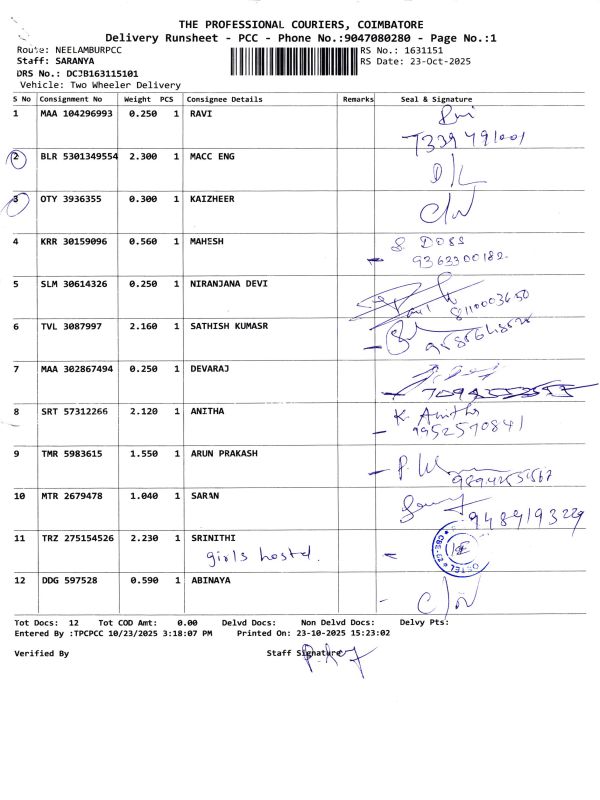 THE PROFESSIONAL COURIERS, COIMBATORE
Delivery Runsheet - PCC - Phone No.:9047080280 - Page No.:1
Route: NEELAMBURPCC RS No.: 1631151
Staff: SARANYA RS Date: 23-Oct-2025
DRS No.: DCJB163115101
Vehicle: Two Wheeler Delivery
S No Consignment No Weight PCS Consignee Details Remarks Seal & Signature
1 MAA 104296993 0.250 1 RAVI
7339491001
2 BLR 5301349554 2.300 1 MACC ENG D/L
3 OTY 3936355 0.300 1 KAIZHEER
4 KRR 30159096 0.560 1 MAHESH S. DOSS
9363300182
5 SLM 30614326 0.250 1 NIRANJANA DEVI
8110003650
6 TVL 3087997 2.160 1 SATHISH KUMASR
7 MAA 302867494 0.250 1 DEVARAJ
8 SRT 57312266 2.120 1 ANITHA K. Anitha
9952570841
9 TMR 5983615 1.550 1 ARUN PRAKASH
10 MTR 2679478 1.040 1 SARAN
9489193229
11 TRZ 275154526 2.230 1 SRINITHI
girls hostel.
12 DDG 597528 0.590 1 ABINAYA
Tot Docs: 12 Tot COD Amt: 0.00 Delvd Docs: Non Delvd Docs: Delvy Pts:
Entered By :TPCPCC 10/23/2025 3:18:07 PM Printed On: 23-10-2025 15:23:02
Verified By Staff Signature